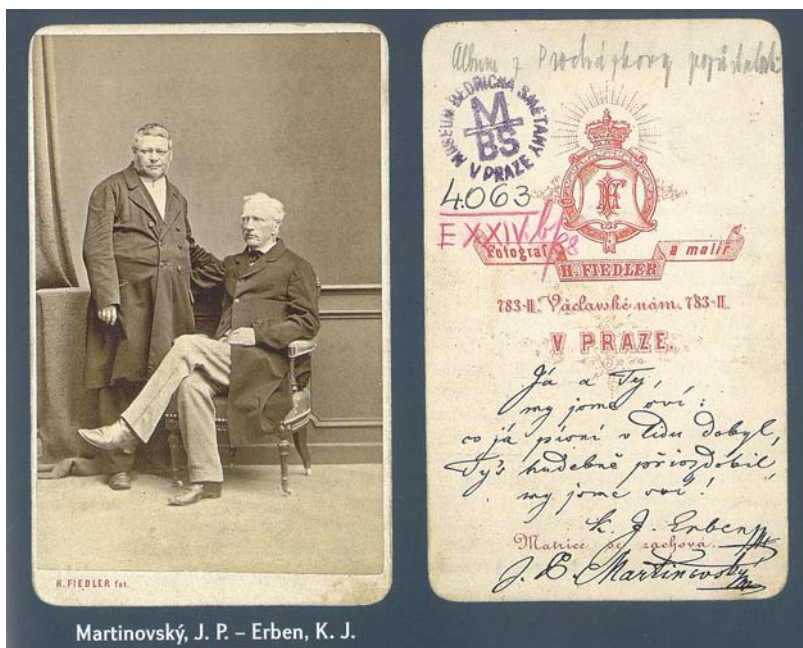 H. FIEDLER fot.
Martinovský, J. P. – Erben, K. J.
Album z Procházkovy pozůstalosti
MUSEUM BEDŘICHA SMETANY V PRAZE
M
BS
4063
E XXIV
Fotograf a malíř
H. FIEDLER
783-II. Václavské nám. 783-II.
V PRAZE.
Já a Ty,
my jsme oví:
co já písní v lidu dobyl,
Ty's hudebně přiozdobil
my jsme oví!
K. J. Erben
Matrice se zachová.
J. P. Martinovský